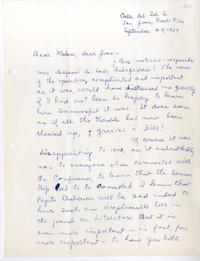 Calle del Sol 2
San Juan, Puerto Rico
September 28, 1959
Dear Madam, dear Jim —
Our notices
was despair to both
of the operation, complicated and important
as it was, would have distressed me greatly
if I had not been so happy to learn
how successful it was. It does seem
as if all the trouble has now been
cleared up, ¡ gracias a Dios!
Of course it was
disappointing to me, as it undoubtedly
was to everyone else connected with
the Conference to learn that the
trip had to be cancelled. I know that
Pepita will be sad indeed to
have such an irreplaceable
the panel on Literature. But it is
even more important — in fact, far
more important — to have you both